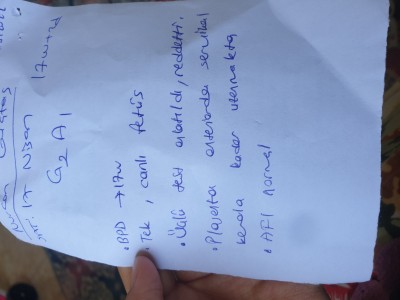 17 Nisan 17w+2d
G2 A1
• BPD → 17w
• Tek, canlı fetüs
• Üçlü test anlatıldı, reddetti.
• Plasenta anteriorda servikal
kanala kadar uzanmakta
• AFI normal